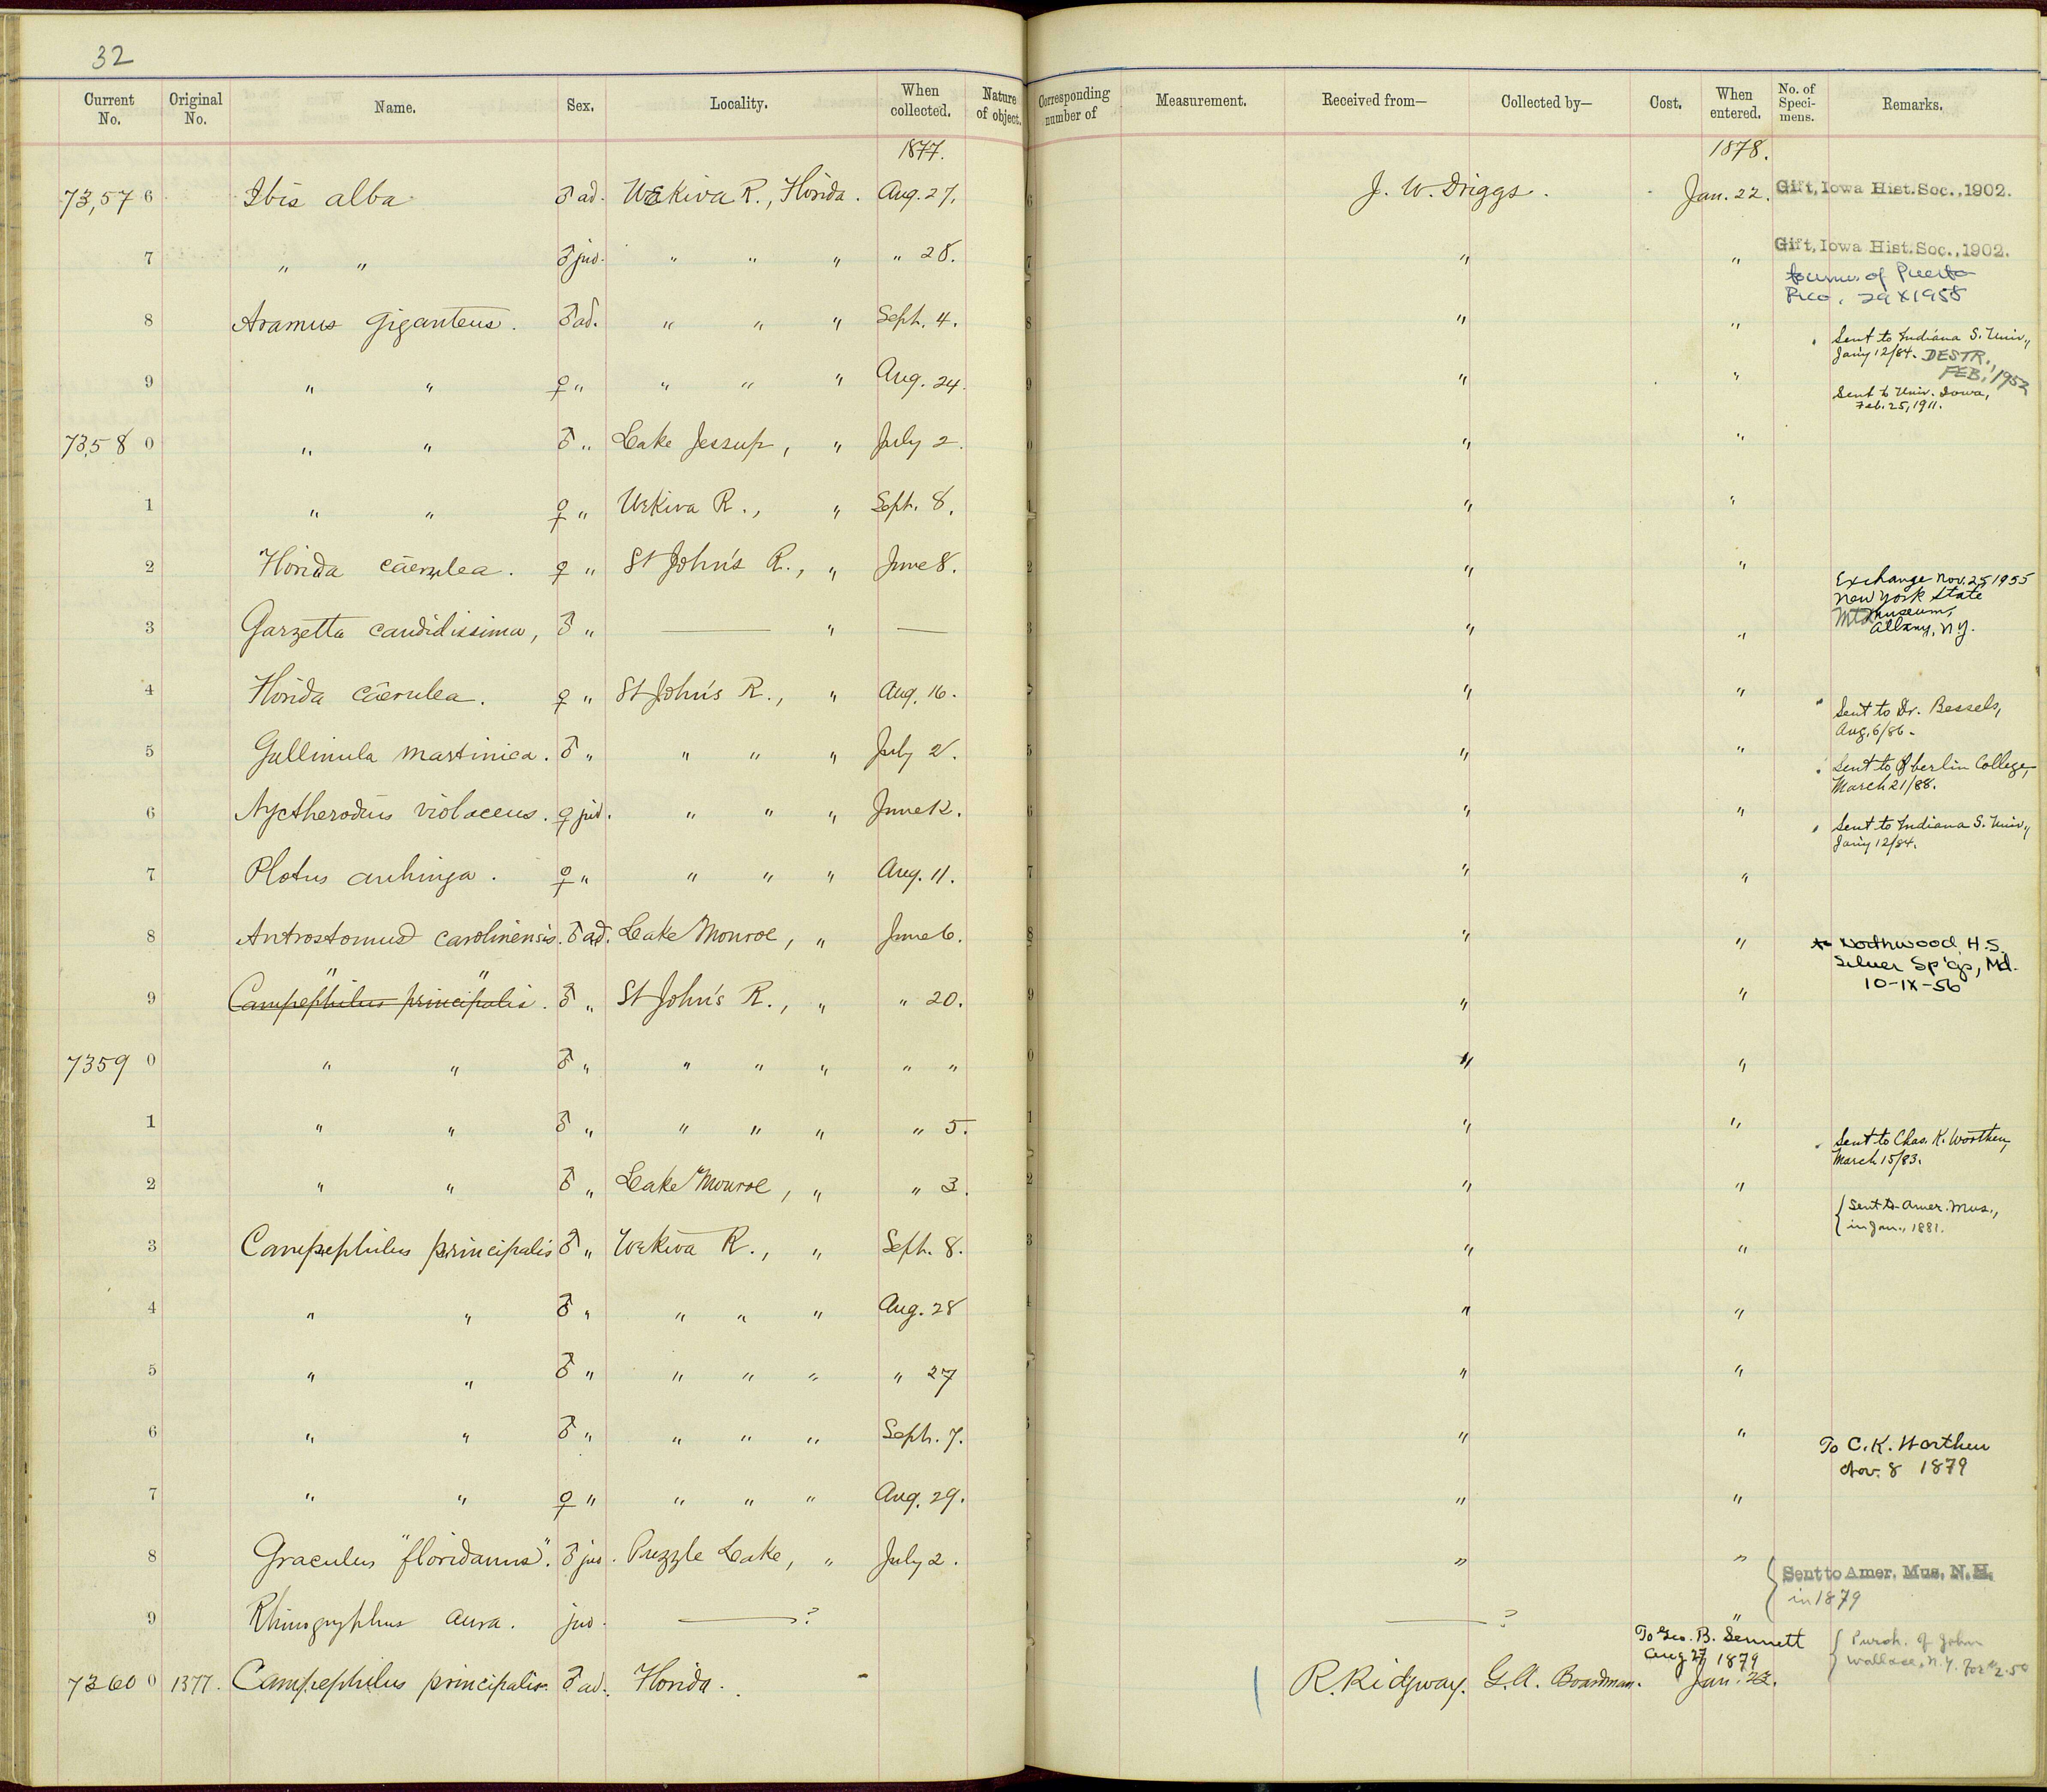 32
Current No. Original No. Name. Sex. Locality. When collected. Nature of object. Corresponding number of Measurement. Received from— Collected by— Cost. When entered. No. of Speci-mens. Remarks.
1877. 1878.
73,57 6 Ibis alba ♂ ad. Wekiva R., Florida. Aug. 27. J. W. Driggs. Jan. 22. Gift, Iowa Hist. Soc., 1902.
7 " " ♂ juv. " " " " 28. " " Gift, Iowa Hist. Soc., 1902.
of Puerto
Rico, 29 X 1958
8 Aramus giganteus. ♂ ad. " " " Sept. 4. " " Sent to Indiana S. Univ.,
Jan'y 12/84. DESTR.
FEB. 1952
9 " " ♀ " " " " Aug. 24. " " Sent to Univ. Iowa,
Feb. 25, 1911.
7358 0 " " ♂ " Lake Jessup, " July 2. " "
1 " " ♀ " Wekiva R., " Sept. 8. " "
2 Florida cærulea. ♀ " St John's R., " June 8. " " Exchange Nov. 25 1955
New York State
Museum,
Albany, N.Y.
3 Garzetta candidissima, ♂ " — " — " "
4 Florida cærulea. ♀ " St John's R., " Aug. 16. " " Sent to Dr. Bessels,
Aug. 6/86.
5 Gallinula martinica. ♂ " " " " July 2. " " Sent to Oberlin College,
March 21/88.
6 Nyctherodius violaceus. ♀ juv. " " " June 12. " " Sent to Indiana S. Univ.,
Jan'y 12/84.
7 Plotus anhinga. ♀ " " " " Aug. 11. " "
8 Antrostomus carolinensis. ♂ ad. Lake Monroe, " June 6. " " to Northwood H.S.
Silver Sp'gs, Md.
10-IX-56
" "
9 Campephilus principalis. ♂ " St John's R., " " 20. " "
7359 0 " " ♂ " " " " " " " "
1 " " ♂ " " " " " 5. " " Sent to Chas. K. Worthen,
March 15/83.
2 " " ♂ " Lake Monroe, " " 3. " " { Sent to Amer. Mus.,
in Jan., 1881.
3 Campephilus principalis ♂ " Wekiva R., " Sept. 8. " "
4 " " ♂ " " " " Aug. 28 " "
5 " " ♂ " " " " " 27 " "
6 " " ♂ " " " " Sept. 7. " " To C. K. Worthen
Nov. 8 1879
7 " " ♀ " " " " Aug. 29. " "
8 Graculus "floridanus". ♂ juv. Puzzle Lake, " July 2. " " { Sent to Amer. Mus. N. H.
in 1879
9 Rhinogryphus aura. juv. —? —? "
To Geo. B. Sennett
Aug 27 1879
{ Purch. of John
Wallace, N.Y. for $2.50
7360 0 1377. Campephilus principalis. ♂ ad. Florida. R. Ridgway. G. A. Boardman. Jan. 23.